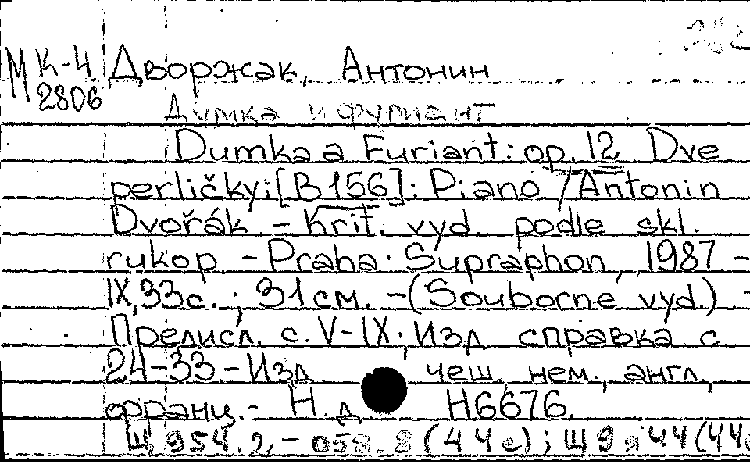 МК-4 Дворжак, Антонин
2806
Думка и фуриант
Dumka a Furiant: op. 12 Dve
perličky: [B156]: Piano / Antonin
Dvořák. - Krit. vyd. podle skl.
rukop. - Praha: Supraphon, 1987 -
IX, 33 с.; 31 см. - (Souborne vyd.) -
Предисл. с. V-IX. Изд. справка с
24-33 - Изд. чеш. нем., англ.,
франц. - Н. д. Н6676.
Щ954.2, - 058.